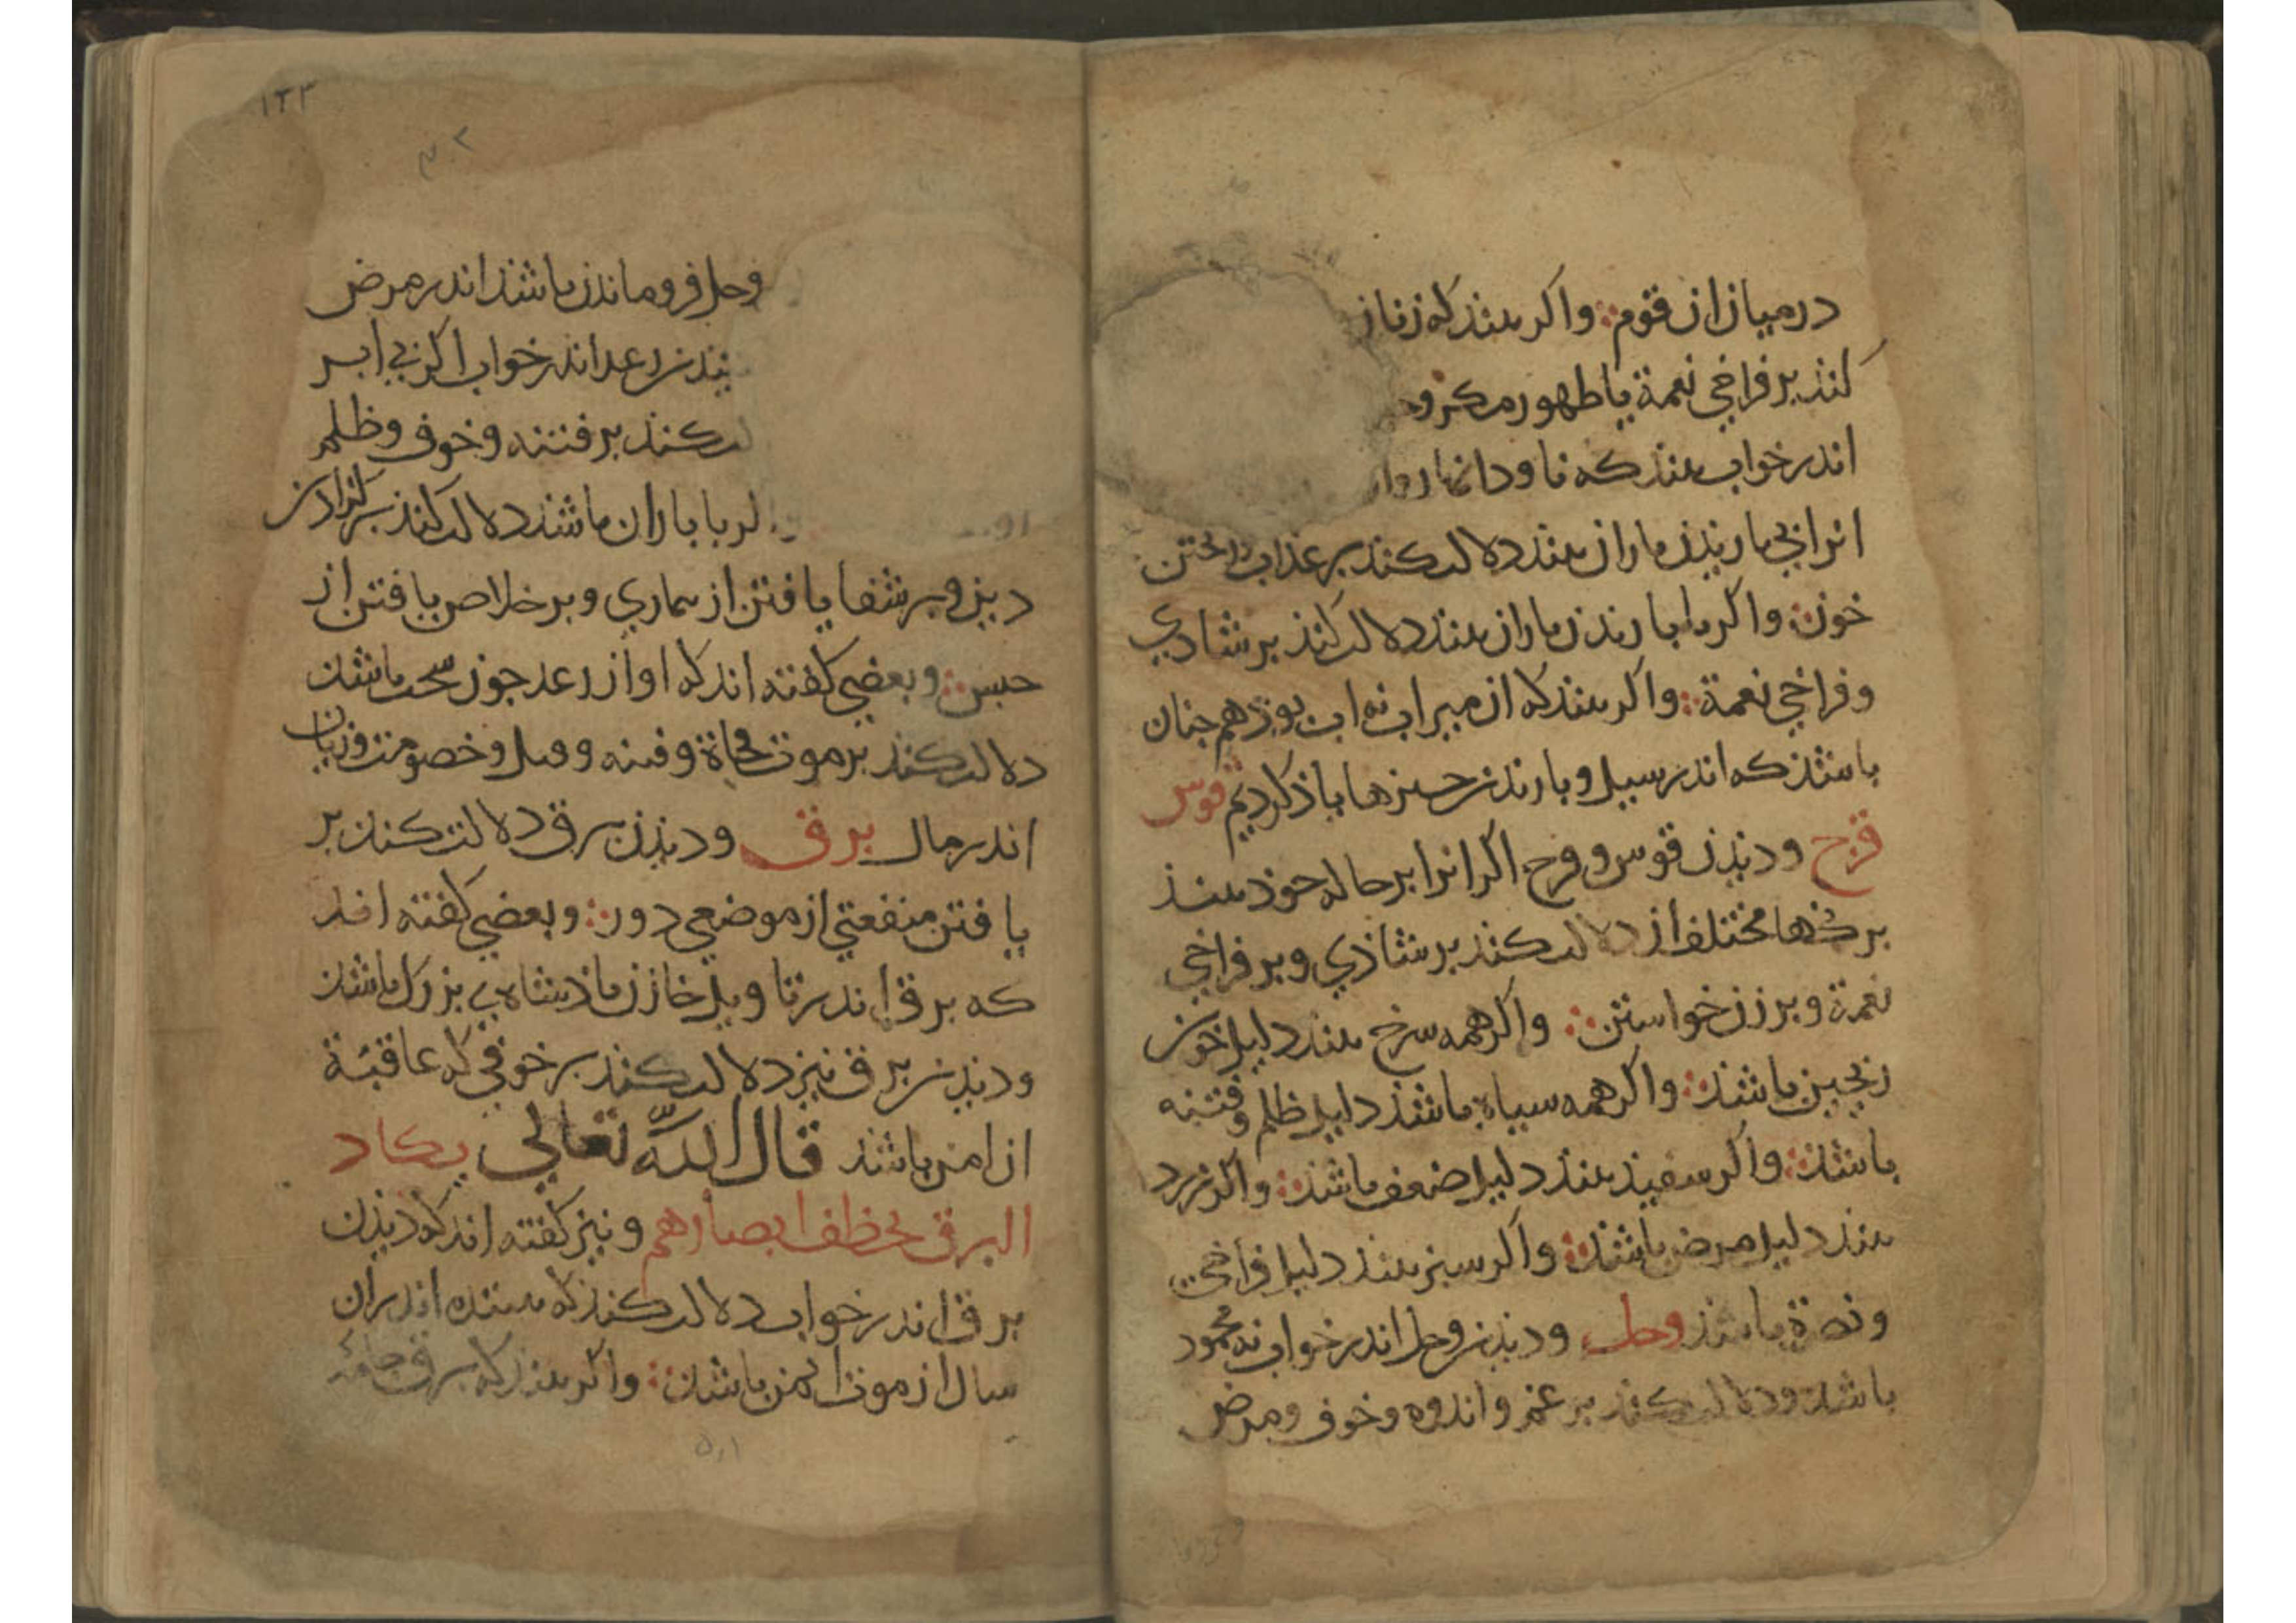 درمیان ان قوم: واکر بیند که زنان
کنذ بر فراخی نعمة یا طهور مکروه
اندر خواب بیند که ناودانها روان
انرا بی باریذن باران بیند دلالت کند بر عذاب ریختن
خون: واکر با باریذن باران بیند دلالت کنذ بر شادی
و فراخی نعمة: واکر بیند که از میزاب نه اب بوذ هم جنان
باشذ که اندر سیل و باریذن جیزها یاذ کردیم قوس
قزح ودیذن قوس و قزح اکر انرا بر حاله خوذ بینذ
برنکها مختلف از دلالت کنذ بر شاذی و بر فراخی
نعمة و بر زن خواستن: واکر همه سرخ بیند دلیل خون
ریختن باشذ: واکر همه سیاه باشذ دلیل ظلم و فتنه
باشذ: واکر سفیذ بینذ دلیل ضعف باشذ: واکر زرد
بیند دلیل مرض باشذ: واکر سبز بینذ دلیل فراخی
و نصرة باشذ وحل ودیذن وحل اندر خواب نه محمود
باشذ ودلالت کند بر غم و اندوه و خوف و مرض
۱۳۳
وحل فروماندن باشذ اندر مرض
یذن رعد اندر خواب اکر بی ابر
لت کنذ بر فتنه و خوف و ظلم
کر با باران باشذ دلالت کنذ بر کزاردن
دین و بر شفا یافتن از بیماری و بر خلاص یافتن از
حبس: و بعضی کفته اند که اواز رعد جون سخت باشذ
دلالت کند بر موت فجاة و فتنه و قتل و خصومت و زیان
اندر مال برق ودیذن برق دلالت کنذ بر
یافتن منفعتی از موضعی دور: و بعضی کفته اند
که برق اندر تاویل خازن پاذشاهی بزرک باشذ
ودیذن برق نیز دلالت کنذ بر خوفی که عاقبة
ان امن باشذ قال الله تعالی یکاد
البرق یخطف ابصارهم و نیز کفته اند که دیذن
برق اندر خواب دلالت کنذ که بیننده اندران
سال از موت ایمن باشذ: واکر بیند که برق جامهٔ